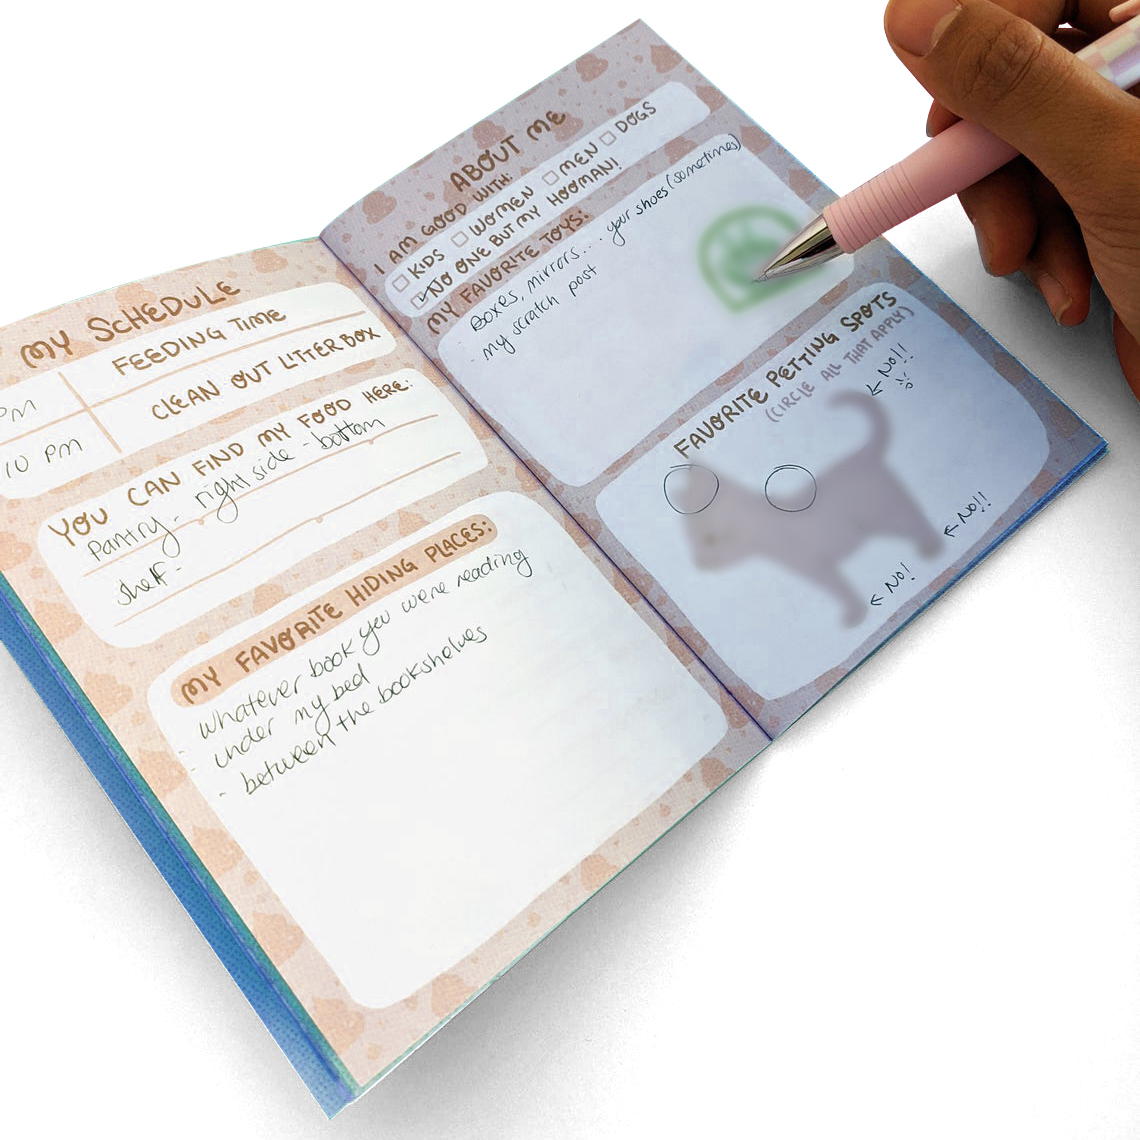 MY SCHEDULE
PM FEEDING TIME
10 PM CLEAN OUT LITTERBOX
YOU CAN FIND MY FOOD HERE:
Pantry - right side - bottom
shelf -
MY FAVORITE HIDING PLACES:
- whatever book you were reading
- under my bed
- between the bookshelves
ABOUT ME
I AM GOOD WITH:
KIDS WOMEN MEN DOGS
NO ONE BUT MY HOOMAN!
MY FAVORITE TOYS:
Boxes, mirrors... your shoes (sometimes)
- my scratch post
FAVORITE PETTING SPOTS
(CIRCLE ALL THAT APPLY)
← No!!
← No!!
← No!